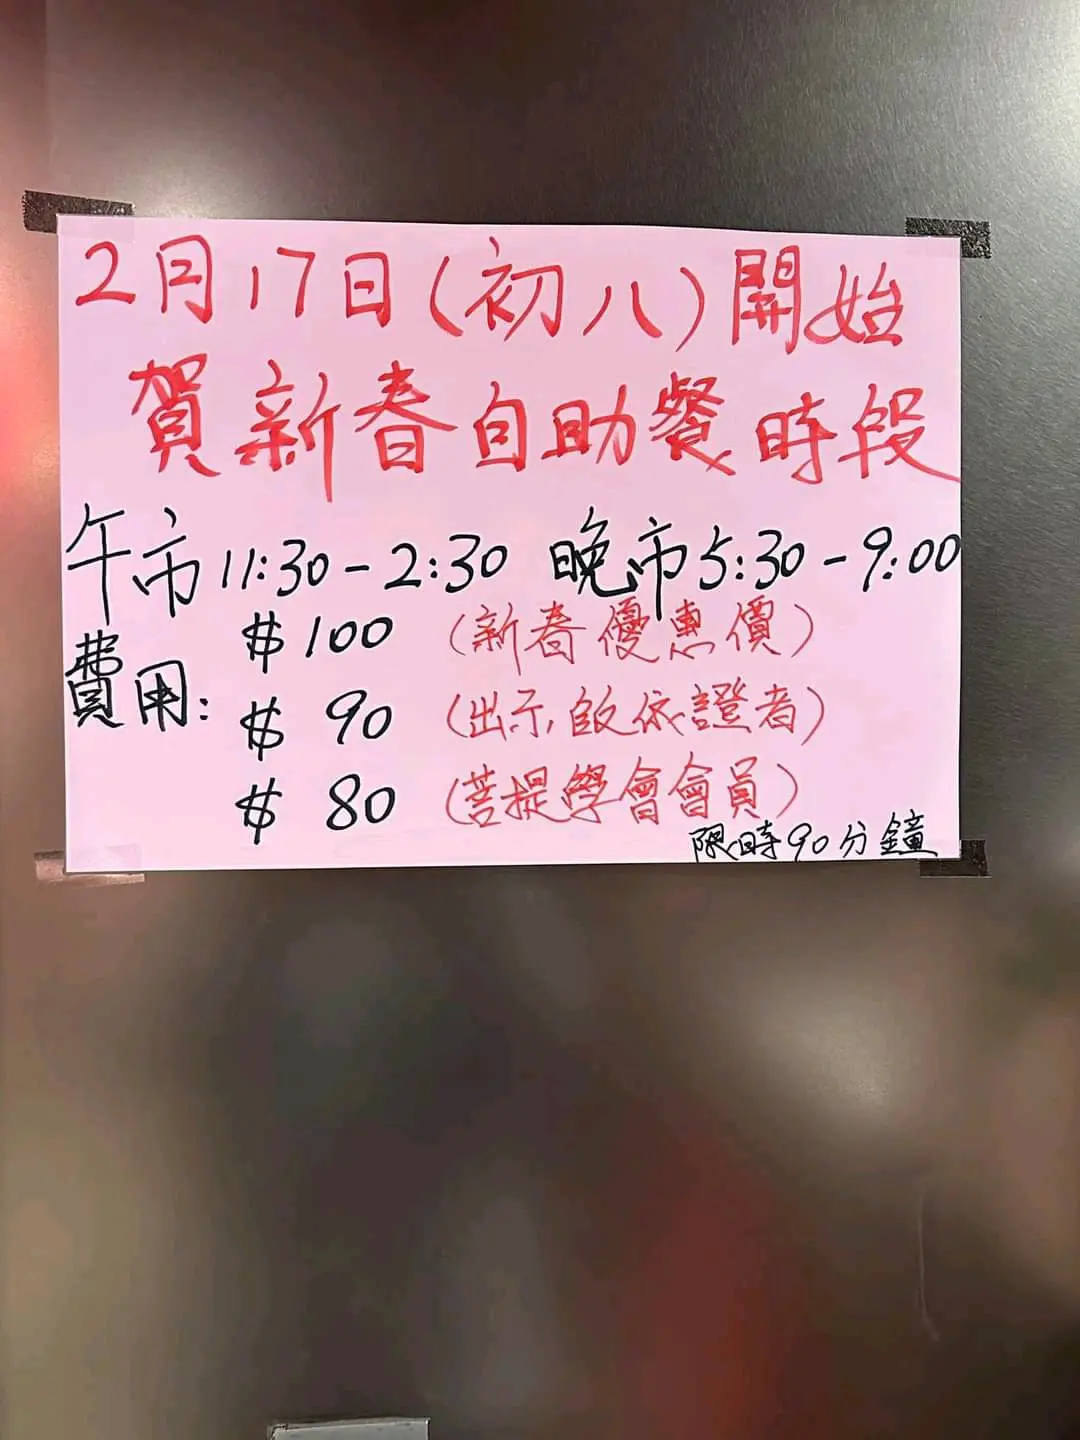 2月17日(初八)開始
賀新春自助餐時段
午市11:30-2:30 晚市5:30-9:00
費用: $100 (新春優惠價)
$90 (出示皈依證者)
$80 (菩提學會會員)
限時90分鐘